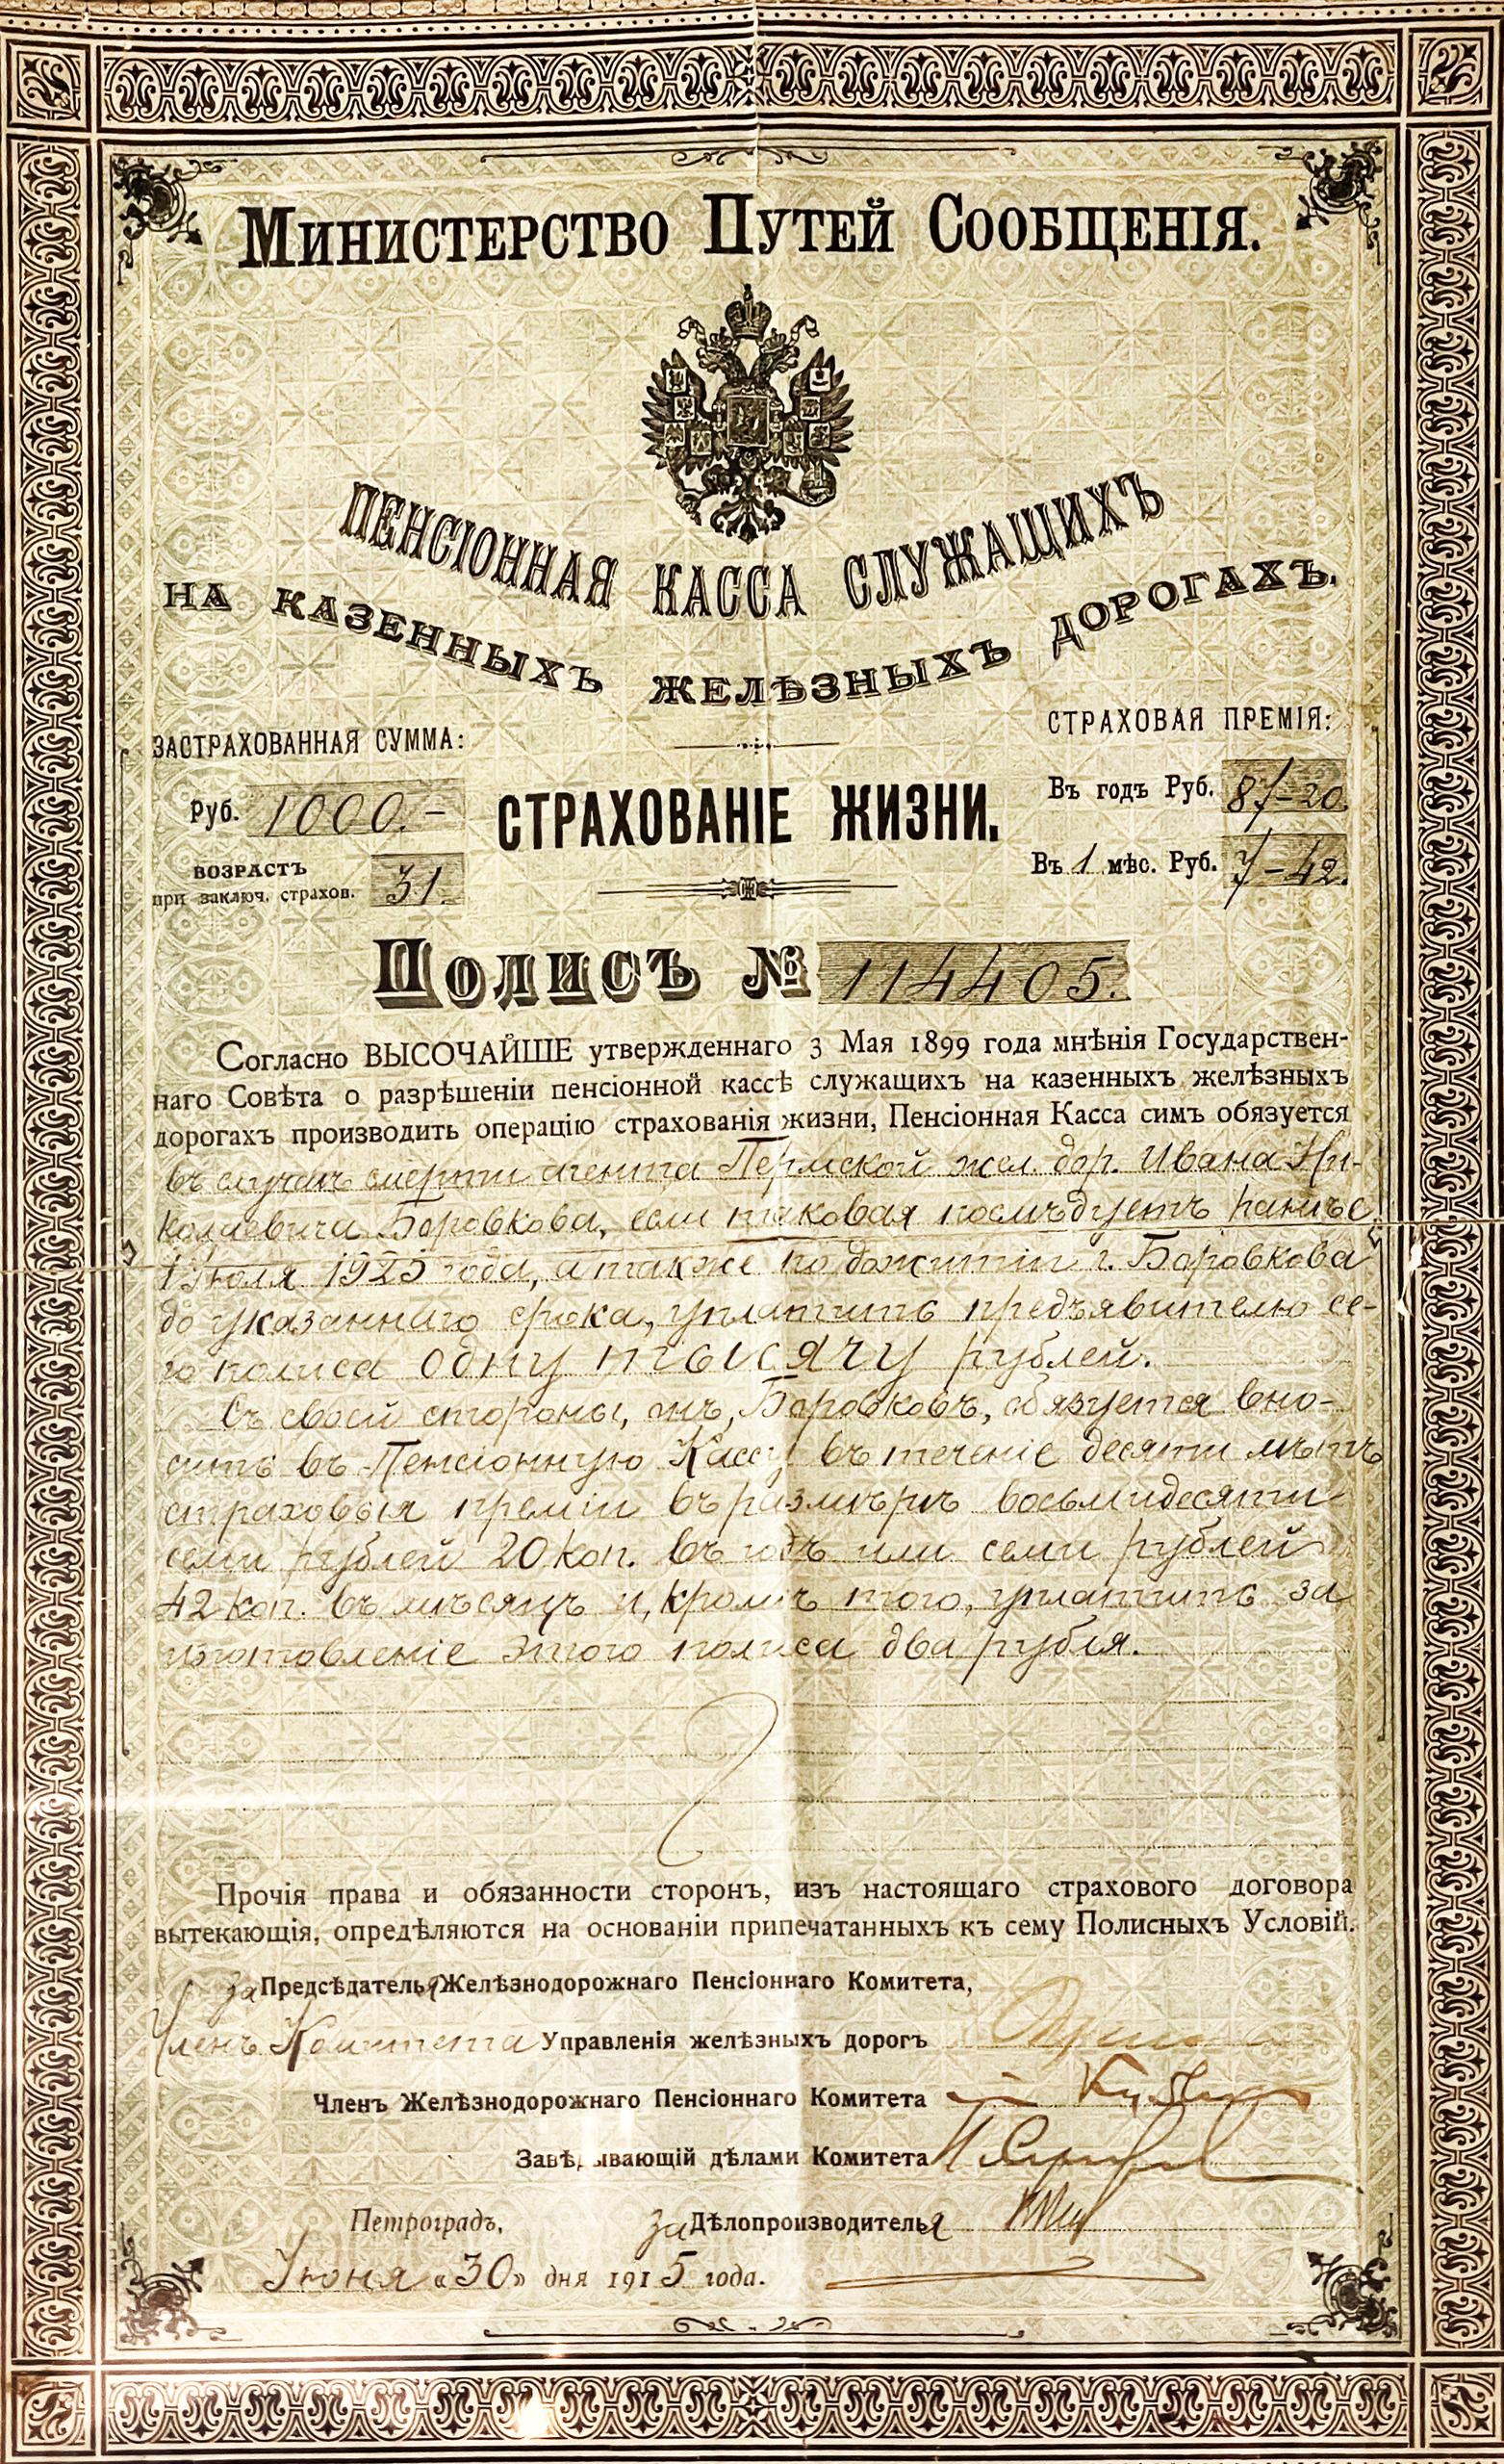 Министерство Путей Сообщенія.
ПЕНСІОННАЯ КАССА СЛУЖАЩИХЪ
НА КАЗЕННЫХЪ ЖЕЛѢЗНЫХЪ ДОРОГАХЪ.
ЗАСТРАХОВАННАЯ СУММА:
Руб. 1000.-
ВОЗРАСТЪ
при заключ. страхов. 31.
СТРАХОВАНІЕ ЖИЗНИ.
СТРАХОВАЯ ПРЕМІЯ:
Въ годъ Руб. 87-20.
Въ 1 мѣс. Руб. 7-42.
Полисъ № 114405.
Согласно ВЫСОЧАЙШЕ утвержденнаго 3 Мая 1899 года мнѣнія Государствен-
наго Совѣта о разрѣшеніи пенсіонной кассѣ служащихъ на казенныхъ желѣзныхъ
дорогахъ производить операцію страхованія жизни, Пенсіонная Касса симъ обязуется
въ случаѣ смерти агента Пермской жел. дор. Ивана Ни-
колаевича Боровкова, если таковая послѣдуетъ ранѣе
1 Іюля 1925 года, а также по дожитіи г. Боровкова
до указаннаго срока, уплатить предъявителю се-
го полиса одну тысячу рублей.
Съ своей стороны, онъ, Боровковъ, обязуется вно-
сить въ Пенсіонную Кассу въ теченіе десяти лѣтъ
страховыя преміи въ размѣрѣ восьмидесяти
семи рублей 20 коп. въ годъ или семи рублей
42 коп. въ мѣсяцъ и, кромѣ того, уплатить за
изготовленіе этого полиса два рубля.
Прочія права и обязанности сторонъ, изъ настоящаго страхового договора
вытекающія, опредѣляются на основаніи припечатанныхъ къ сему Полисныхъ Условій.
за Предсѣдателья Желѣзнодорожнаго Пенсіоннаго Комитета,
Членъ Комитета Управленія желѣзныхъ дорогъ
Членъ Желѣзнодорожнаго Пенсіоннаго Комитета
Завѣдывающій дѣлами Комитета
Петроградъ,
за Дѣлопроизводителья
Іюня «30» дня 1915 года.